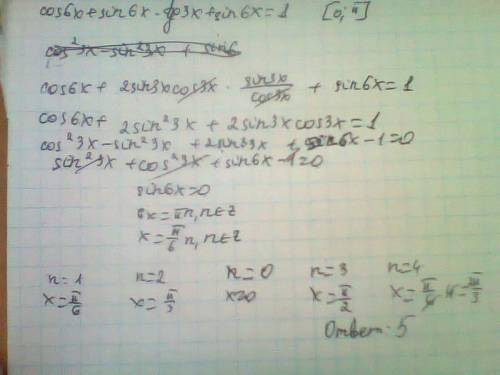 cos6x + sin6x · tg3x + sin6x = 1 [0; π]
cos²3x - sin²3x + sin6
cos6x + 2sin3xcos3x · sin3x/cos3x + sin6x = 1
cos6x + 2sin²3x + 2sin3xcos3x = 1
cos²3x - sin²3x + 2sin²3x + sin6x - 1 = 0
sin²3x + cos²3x + sin6x - 1 = 0
sin6x = 0
6x = πn, n∈Z
x = π/6 n, n∈Z
n=1 n=2 n=0 n=3 n=4
x = π/6 x = π/3 x=0 x = π/2 x = π/6 · 4 = 2π/3
Ответ: 5